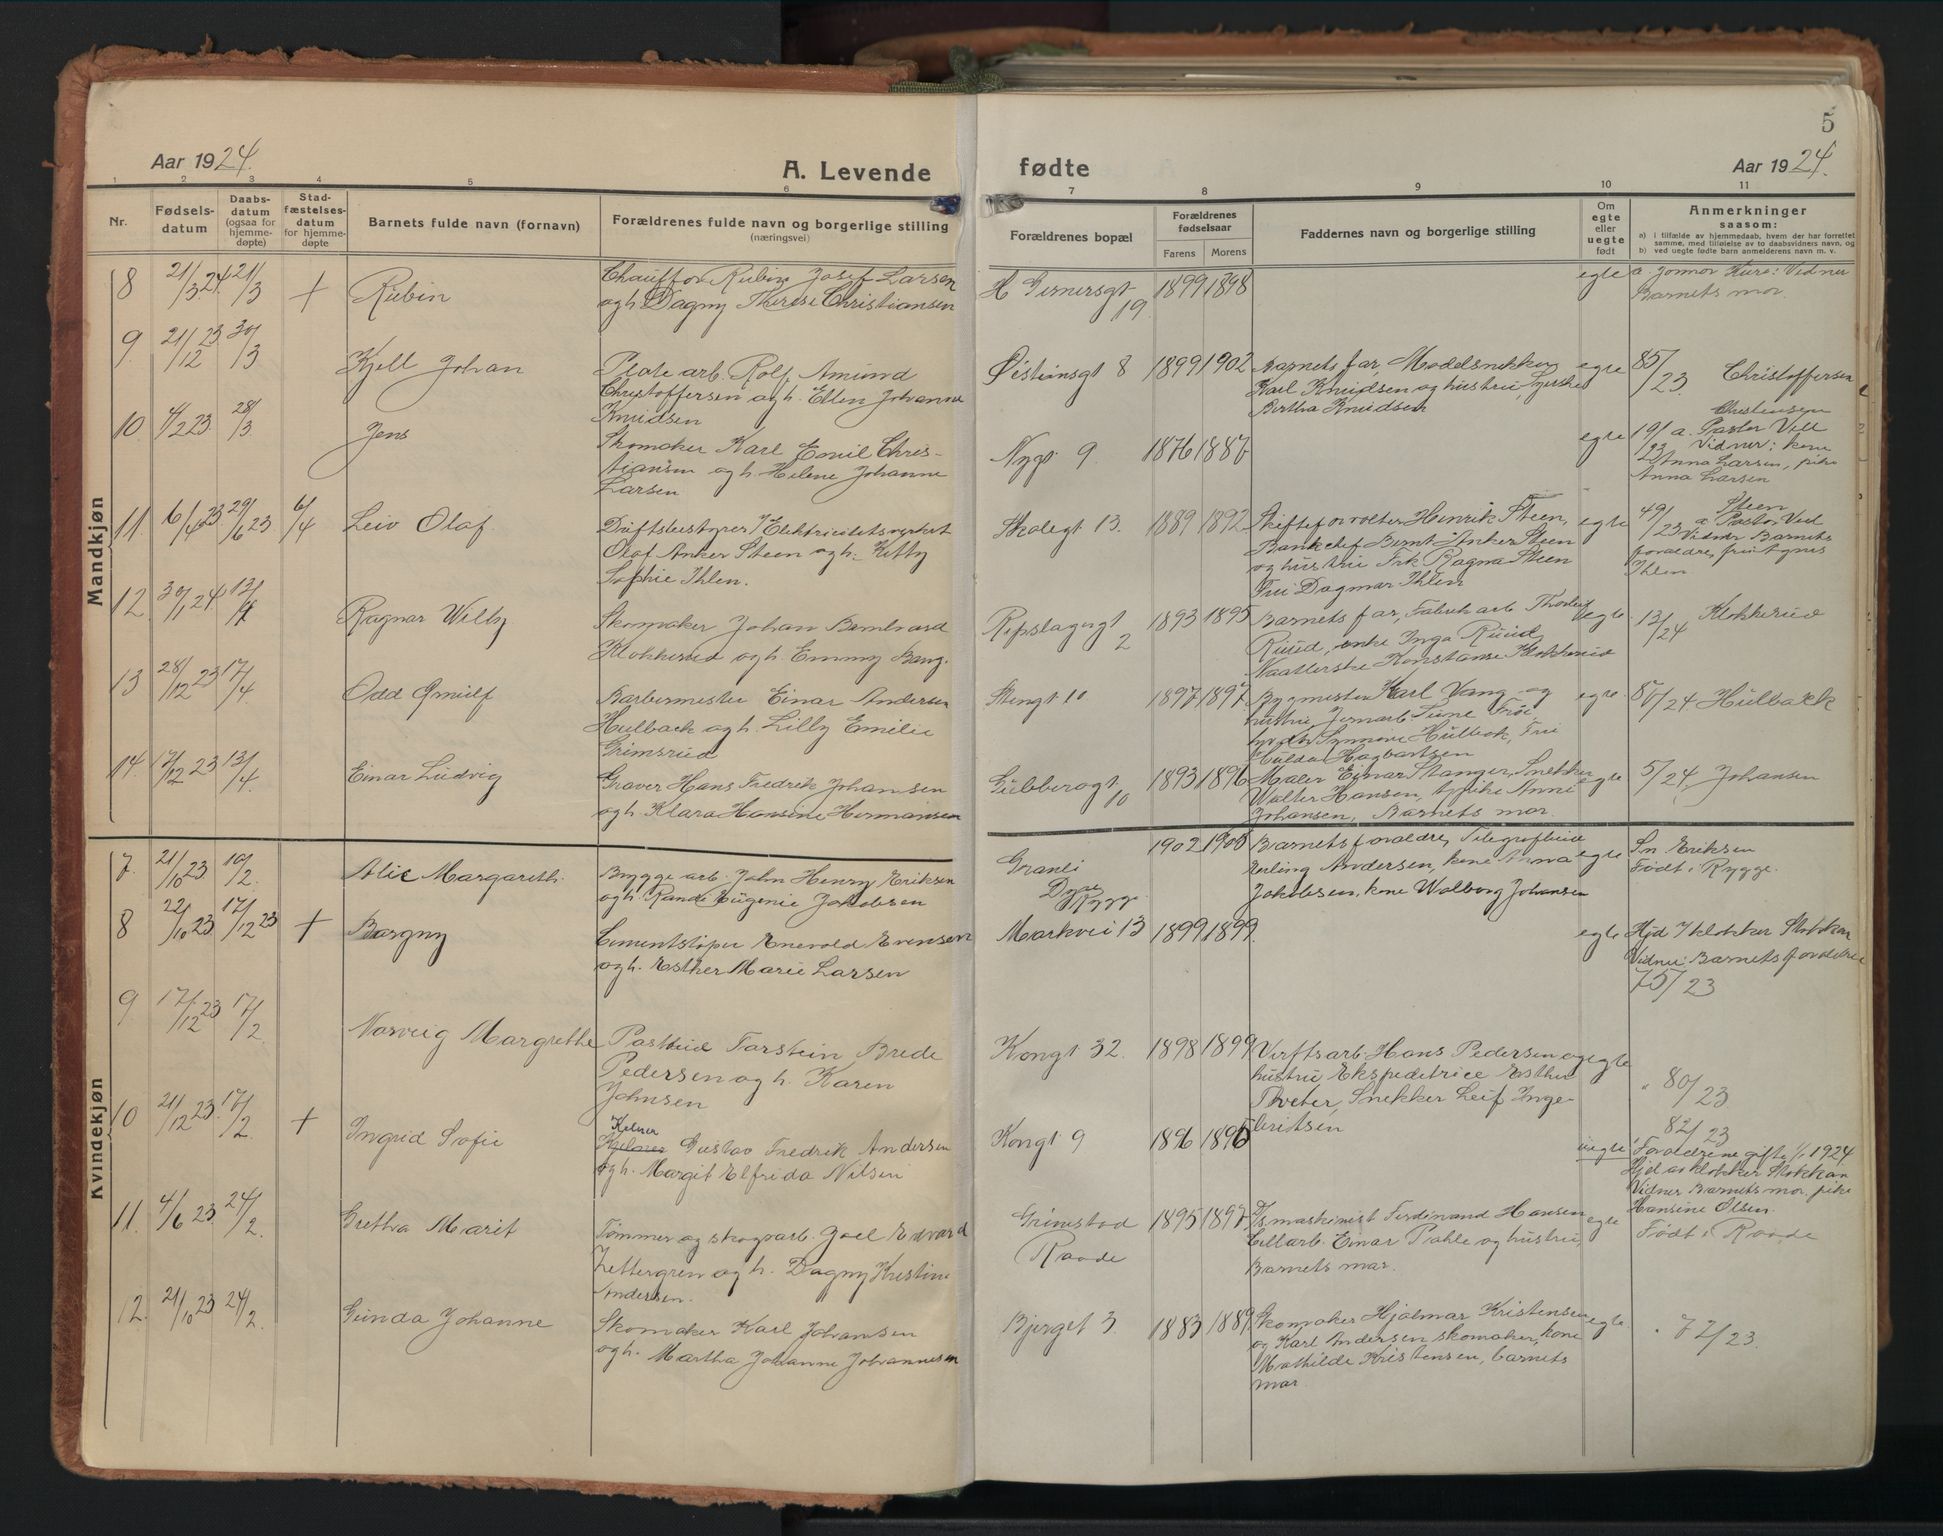 5
Aar 1924.
A. Levende
fødte
Aar 1924.
1 2 3 4 5 6 7 8 9 10 11
Nr.
Fødsels-
datum
Daabs-
datum
(ogsaa for
hjemme-
døpte)
Stad-
fæstelses-
datum
for hjemme-
døpte
Barnets fulde navn (fornavn)
Forældrenes fulde navn og borgerlige stilling
(næringsvei)
Forældrenes bopæl
Forældrenes
fødselsaar
Farens Morens
Faddernes navn og borgerlige stilling
Om
egte
eller
uegte
født
Anmerkninger
saasom:
a) i tilfælde av hjemmedaab, hvem der har forrettet
samme, med tilføielse av to daabsvidners navn, og
b) ved uegte født barn anmelderens navn m. v.
Mandkjøn
8 21/3 24. 21/3 + Rubin
Chauffør Rubin Josef Larsen
og h. Dagny Therese Christiansen
H Gernersgt
19.
1899 1898
egte
Vidner
Barnets mor.
9 21/12 23 30/3 Kjell Johan
Plate arb. Rolf Amund
Christoffersen og h. Ellen Johanne
Knudsen
Østiønsgt 8 1899 1902
Barnets far, Modelsnekker
Karl Knudsen og hustru,
Bertha Knudsen
egte 85/23 Christoffersen
10 4/2 23 28/3 Jens
Skomaker Karl Emil Chris-
tiansen og h. Helene Johanne
Larsen
Nygt 9. 1876 1887
egte
Christensen
19/23 a. Pastor Vell
Vidner: kone
Anna Larsen, pike
Anna Larsen
11. 6/4 23 29/6 23 6/4 Leiv Olaf
Driftsbestyrer v/Elektricitetsverket
Olaf Anker Steen og h. Kitty
Sophie Ihlen.
Skolegt 13. 1889 1892
Skifteforvalter Henrik Steen,
Bankchef Bernt Anker Steen
og hustru Frk Ragna Steen
Fru Dagmar Ihlen
egte 49/23
Steen
a Pastor Ved
Vidner Barnets
forældre, fru Agnes
Ihlen
12 30/1 24 13/4 Ragnar Willy
Skomaker Johan Bernhard
Klokkerud og h. Emmy Bang.
Repslagergt
2
1893 1895
Barnets far, Fabrikarb Thorleif
Ruud, enke Inga Ruud,
Naatlerske Konstanse Klokkerud
egte. 13/24 Klokkerud
13 28/12 23 17/4 Odd Arnulf
Barbermester Einar Andersen
Hulback og h. Lilly Emilie
Grimsrud
Stengt 10 1897 1897
Bygmester Karl Vang og
hustru, Jernarb Sune
Synnøve Hulbak, Fru
Hulda Hagbartsen
egte. 8/24 Hulback
14. 7/12 23 13/4. Einar Ludvig
Graver Hans Fredrik Johansen
og h. Klara Hansine Hermansen
Gubberogt
10
1893 1896
Maler Einar Stanger, Snekker
Walter Hansen, pike Anne
Johansen, Barnets mor.
egte 5/24. Johansen
Kvindekjøn
7. 21/10 23 10/2. Alic Margareth.
Brygge arb. John Henry Eriksen
og h. Randi Eugenie Jakobsen
Granli
Dyre
Rygge
1902 1900
Barnets forældre, Telegrafbud
Erling Andersen, kone Anna
Jakobsen, kone Walborg Johansen
egte
Sn. Eriksen
Født i Rygge.
8 22/10 23 17/12 23 + Bargny
Cementstøper Enevold Evensen
og h. Esther Marie Larsen
Markvei 13 1899 1899.
egte Hjd v klokker Stokkan
Vidner: Barnets forældre
75/23
9 17/12 23 17/2. Norveig Margrethe
Postbud Torstein Brede
Pedersen og h. Karen
Johnsen
Kongt 32. 1898 1899
Verftsarb. Hans Pedersen og
hustru Ekspeditrice Esther
Tveter, Snekker Leif Inge-
britsen
egte " 80/23
10 21/12 23. 17/2. + Ingrid Sofie
Kelner
Gustav Fredrik Andersen
og h. Margit Elfrida Nilsen
Kongt 9 1896 1895
uegte!
82/23
Forældrene gifte 1/1 1924
Hjd av klokker Stokkan
Vidner Barnets mor, pike
Hansine Olsen.
11. 4/6 23 24/2. Grethra Marit
Tømmer og skogsarb. Joel Edvard
Zettergren og h. Dagny Kristine
Andersen.
Grimstad
Raade
1895 1897
D/s maskinist Ferdinand Hansen
Cellarb. Einar Pahle og hustru,
Barnets mor.
egte Født i Raade
12. 21/10 23 24/2. Gunda Johanne
Skomaker Karl Johansen
og h. Martha Johanne Johannesen
Bjerget 3. 1883 1889.
Skomaker Hjalmar Kristensen
og Karl Andersen skomaker, kone
Mathilde Kristensen, barnets
mor
egte. " 72/23.